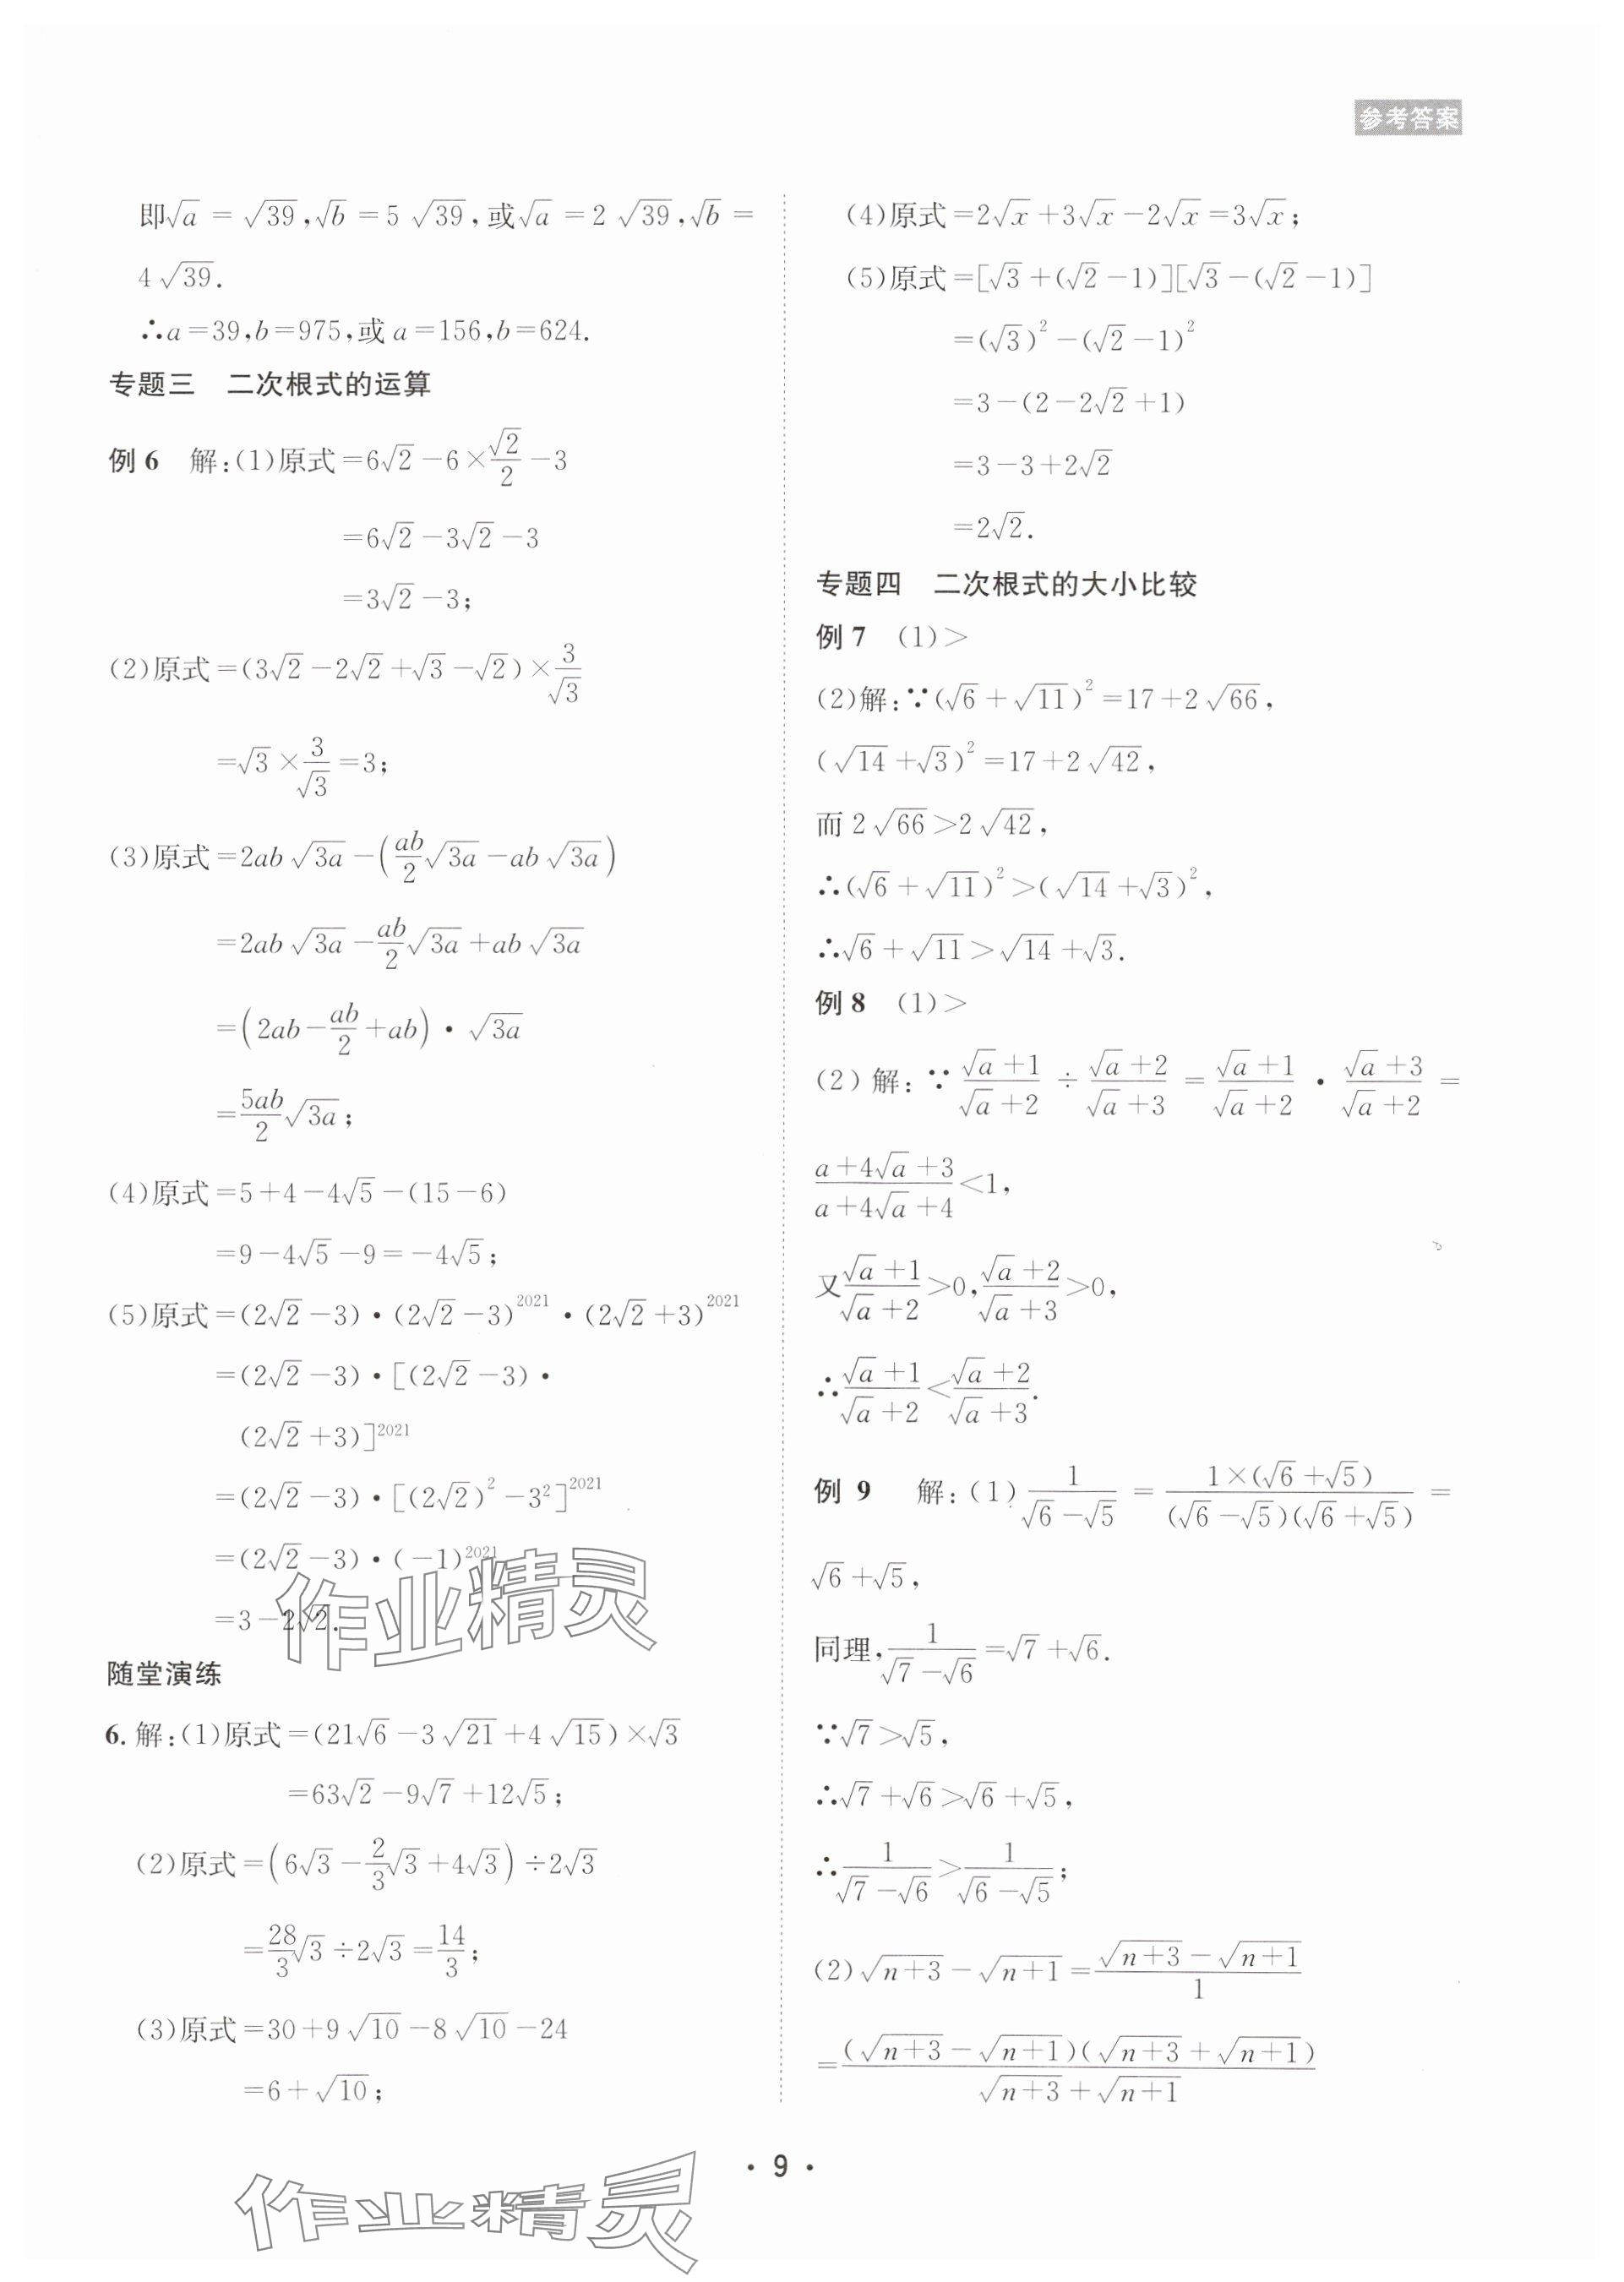 参考答案
即√a = √39,√b = 5√39,或√a = 2√39,√b =
4√39.
∴a=39,b=975,或a=156,b=624.
专题三 二次根式的运算
例6 解:(1)原式=6√2-6×√2/2-3
=6√2-3√2-3
=3√2-3;
(2)原式=(3√2-2√2+√3-√2)×3/√3
=√3×3/√3=3;
(3)原式=2ab√3a-(ab/2√3a-ab√3a)
=2ab√3a-ab/2√3a+ab√3a
=(2ab-ab/2+ab)·√3a
=5ab/2√3a;
(4)原式=5+4-4√5-(15-6)
=9-4√5-9=-4√5;
(5)原式=(2√2-3)·(2√2-3)^2021·(2√2+3)^2021
=(2√2-3)·[(2√2-3)·
(2√2+3)]^2021
=(2√2-3)·[(2√2)²-3²]^2021
=(2√2-3)·(-1)^2021
=3-2√2.
随堂演练
6.解:(1)原式=(21√6-3√21+4√15)×√3
=63√2-9√7+12√5;
(2)原式=(6√3-2/3√3+4√3)÷2√3
=28/3√3÷2√3=14/3;
(3)原式=30+9√10-8√10-24
=6+√10;
(4)原式=2√x+3√x-2√x=3√x;
(5)原式=[√3+(√2-1)][√3-(√2-1)]
=(√3)²-(√2-1)²
=3-(2-2√2+1)
=3-3+2√2
=2√2.
专题四 二次根式的大小比较
例7 (1)>
(2)解:∵(√6+√11)²=17+2√66,
(√14+√3)²=17+2√42,
而2√66>2√42,
∴(√6+√11)²>(√14+√3)²,
∴√6+√11>√14+√3.
例8 (1)>
(2)解:∵(√a+1)/(√a+2)÷(√a+2)/(√a+3)=(√a+1)/(√a+2)·(√a+3)/(√a+2)=
(a+4√a+3)/(a+4√a+4)<1,
又(√a+1)/(√a+2)>0,(√a+2)/(√a+3)>0,
∴(√a+1)/(√a+2)<(√a+2)/(√a+3).
例9 解:(1)1/(√6-√5)=1×(√6+√5)/(√6-√5)(√6+√5)=
√6+√5,
同理,1/(√7-√6)=√7+√6.
∵√7>√5,
∴√7+√6>√6+√5,
∴1/(√7-√6)>1/(√6-√5);
(2)√(n+3)-√(n+1)=(√(n+3)-√(n+1))/1
=(√(n+3)-√(n+1))(√(n+3)+√(n+1))/(√(n+3)+√(n+1))
·9·
作业精灵
作业精灵